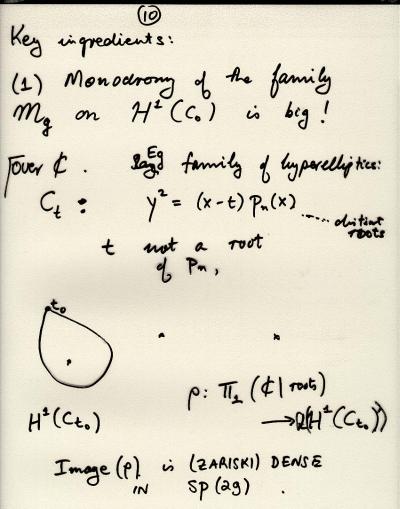 10
Key ingredients:
(1) Monodromy of the family
M_g on H^1(C_0) is big!
Over ₵. Eg family of hyperelliptics:
C_t : y^2 = (x-t) P_n(x)
distint
roots
t not a root
of P_n,
t_0
ρ: Π_1 (₵ | roots)
H^1(C_t_0)
Image (ρ) is (ZARISKI) DENSE
IN SP(2g).